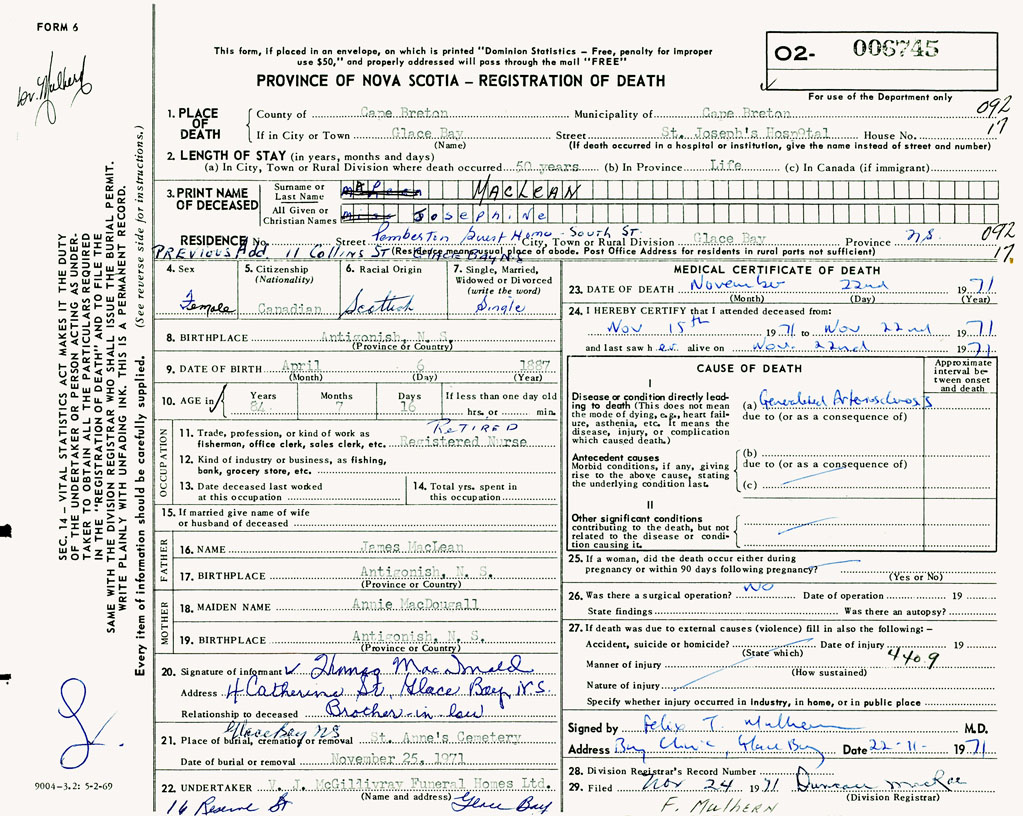 FORM 6
Dr. Mulhern
This form, if placed in an envelope, on which is printed "Dominion Statistics – Free, penalty for improper
use $50," and properly addressed will pass through the mail "FREE"
PROVINCE OF NOVA SCOTIA – REGISTRATION OF DEATH
O2- 006745
For use of the Department only
092
17
1. PLACE OF DEATH
County of Cape Breton Municipality of Cape Breton
If in City or Town Glace Bay Street St. Joseph's Hosp0tal House No.
(Name) (If death occurred in a hospital or institution, give the name instead of street and number)
2. LENGTH OF STAY (in years, months and days)
(a) In City, Town or Rural Division where death occurred 50 years (b) In Province Life (c) In Canada (if immigrant)
3. PRINT NAME OF DECEASED
Surname or Last Name MACLEAN
All Given or Christian Names JOSEPHINE
RESIDENCE No. Street Pemberton Guest Home - South St. City, Town or Rural Division Glace Bay Province N.S.
092
17
PREVIOUS Add. 11 Collins ST GLACE BAY N.S.
(Residence means place of abode. Post Office Address for residents in rural parts not sufficient)
4. Sex
Female
5. Citizenship
(Nationality)
Canadian
6. Racial Origin
Scottish
7. Single, Married,
Widowed or Divorced
(write the word)
Single
8. BIRTHPLACE Antigonish, N. S.
(Province or Country)
9. DATE OF BIRTH April 6 1887
(Month) (Day) (Year)
10. AGE in
Years Months Days If less than one day old
84 7 16 hrs. or min.
OCCUPATION
RETIRED
11. Trade, profession, or kind of work as
fisherman, office clerk, sales clerk, etc. Registered Nurse
12. Kind of industry or business, as fishing,
bank, grocery store, etc.
13. Date deceased last worked
at this occupation
14. Total yrs. spent in
this occupation
15. If married give name of wife
or husband of deceased
FATHER
16. NAME James MacLean
17. BIRTHPLACE Antigonish, N. S.
(Province or Country)
MOTHER
18. MAIDEN NAME Annie MacDougall
19. BIRTHPLACE Antigonish, N. S.
(Province or Country)
20. Signature of informant Thomas MacDonald
Address 4 Catherine St, Glace Bay, N.S.
Relationship to deceased Brother-in-law
Glace Bay NS
21. Place of burial, cremation or removal St. Anne's Cemetery
Date of burial or removal November 25, 1971
22. UNDERTAKER V. J. McGillivray Funeral Homes Ltd.
(Name and address)
16 Reserve St Glace Bay
MEDICAL CERTIFICATE OF DEATH
23. DATE OF DEATH November 22nd 1971
(Month) (Day) (Year)
24. I HEREBY CERTIFY that I attended deceased from:
Nov 15th 1971 to Nov 22nd 1971
and last saw her alive on Nov. 22nd 1971
CAUSE OF DEATH
Approximate
interval be-
tween onset
and death
I
Disease or condition directly lead-
ing to death (This does not mean
the mode of dying, e.g., heart fail-
ure, asthenia, etc. It means the
disease, injury, or complication
which caused death.)
(a) Generalized Arteriosclerosis
due to (or as a consequence of)
Antecedent causes
Morbid conditions, if any, giving
rise to the above cause, stating
the underlying condition last.
(b)
due to (or as a consequence of)
(c)
II
Other significant conditions
contributing to the death, but not
related to the disease or condi-
tion causing it.
25. If a woman, did the death occur either during
pregnancy or within 90 days following pregnancy?
(Yes or No)
26. Was there a surgical operation? NO Date of operation 19
State findings Was there an autopsy?
27. If death was due to external causes (violence) fill in also the following: –
Accident, suicide or homicide? Date of injury 19
(State which)
4409
Manner of injury
(How sustained)
Nature of injury
Specify whether injury occurred in industry, in home, or in public place
Signed by Felix T. Mulhern M.D.
Address Bay Clinic, Glace Bay Date 22-11- 1971
28. Division Registrar's Record Number
29. Filed Nov 24 1971 Duncan MacRae
(Division Registrar)
F. MULHERN
SEC. 14 – VITAL STATISTICS ACT MAKES IT THE DUTY
OF THE UNDERTAKER OR PERSON ACTING AS UNDER-
TAKER TO OBTAIN ALL THE PARTICULARS REQUIRED
IN THE "REGISTRATION OF DEATH" AND TO FILE THE
SAME WITH THE DIVISION REGISTRAR WHO SHALL ISSUE THE BURIAL PERMIT.
WRITE PLAINLY WITH UNFADING INK. THIS IS A PERMANENT RECORD.
Every item of information should be carefully supplied. (See reverse side for instructions.)
9004-3.2: 5-2-69